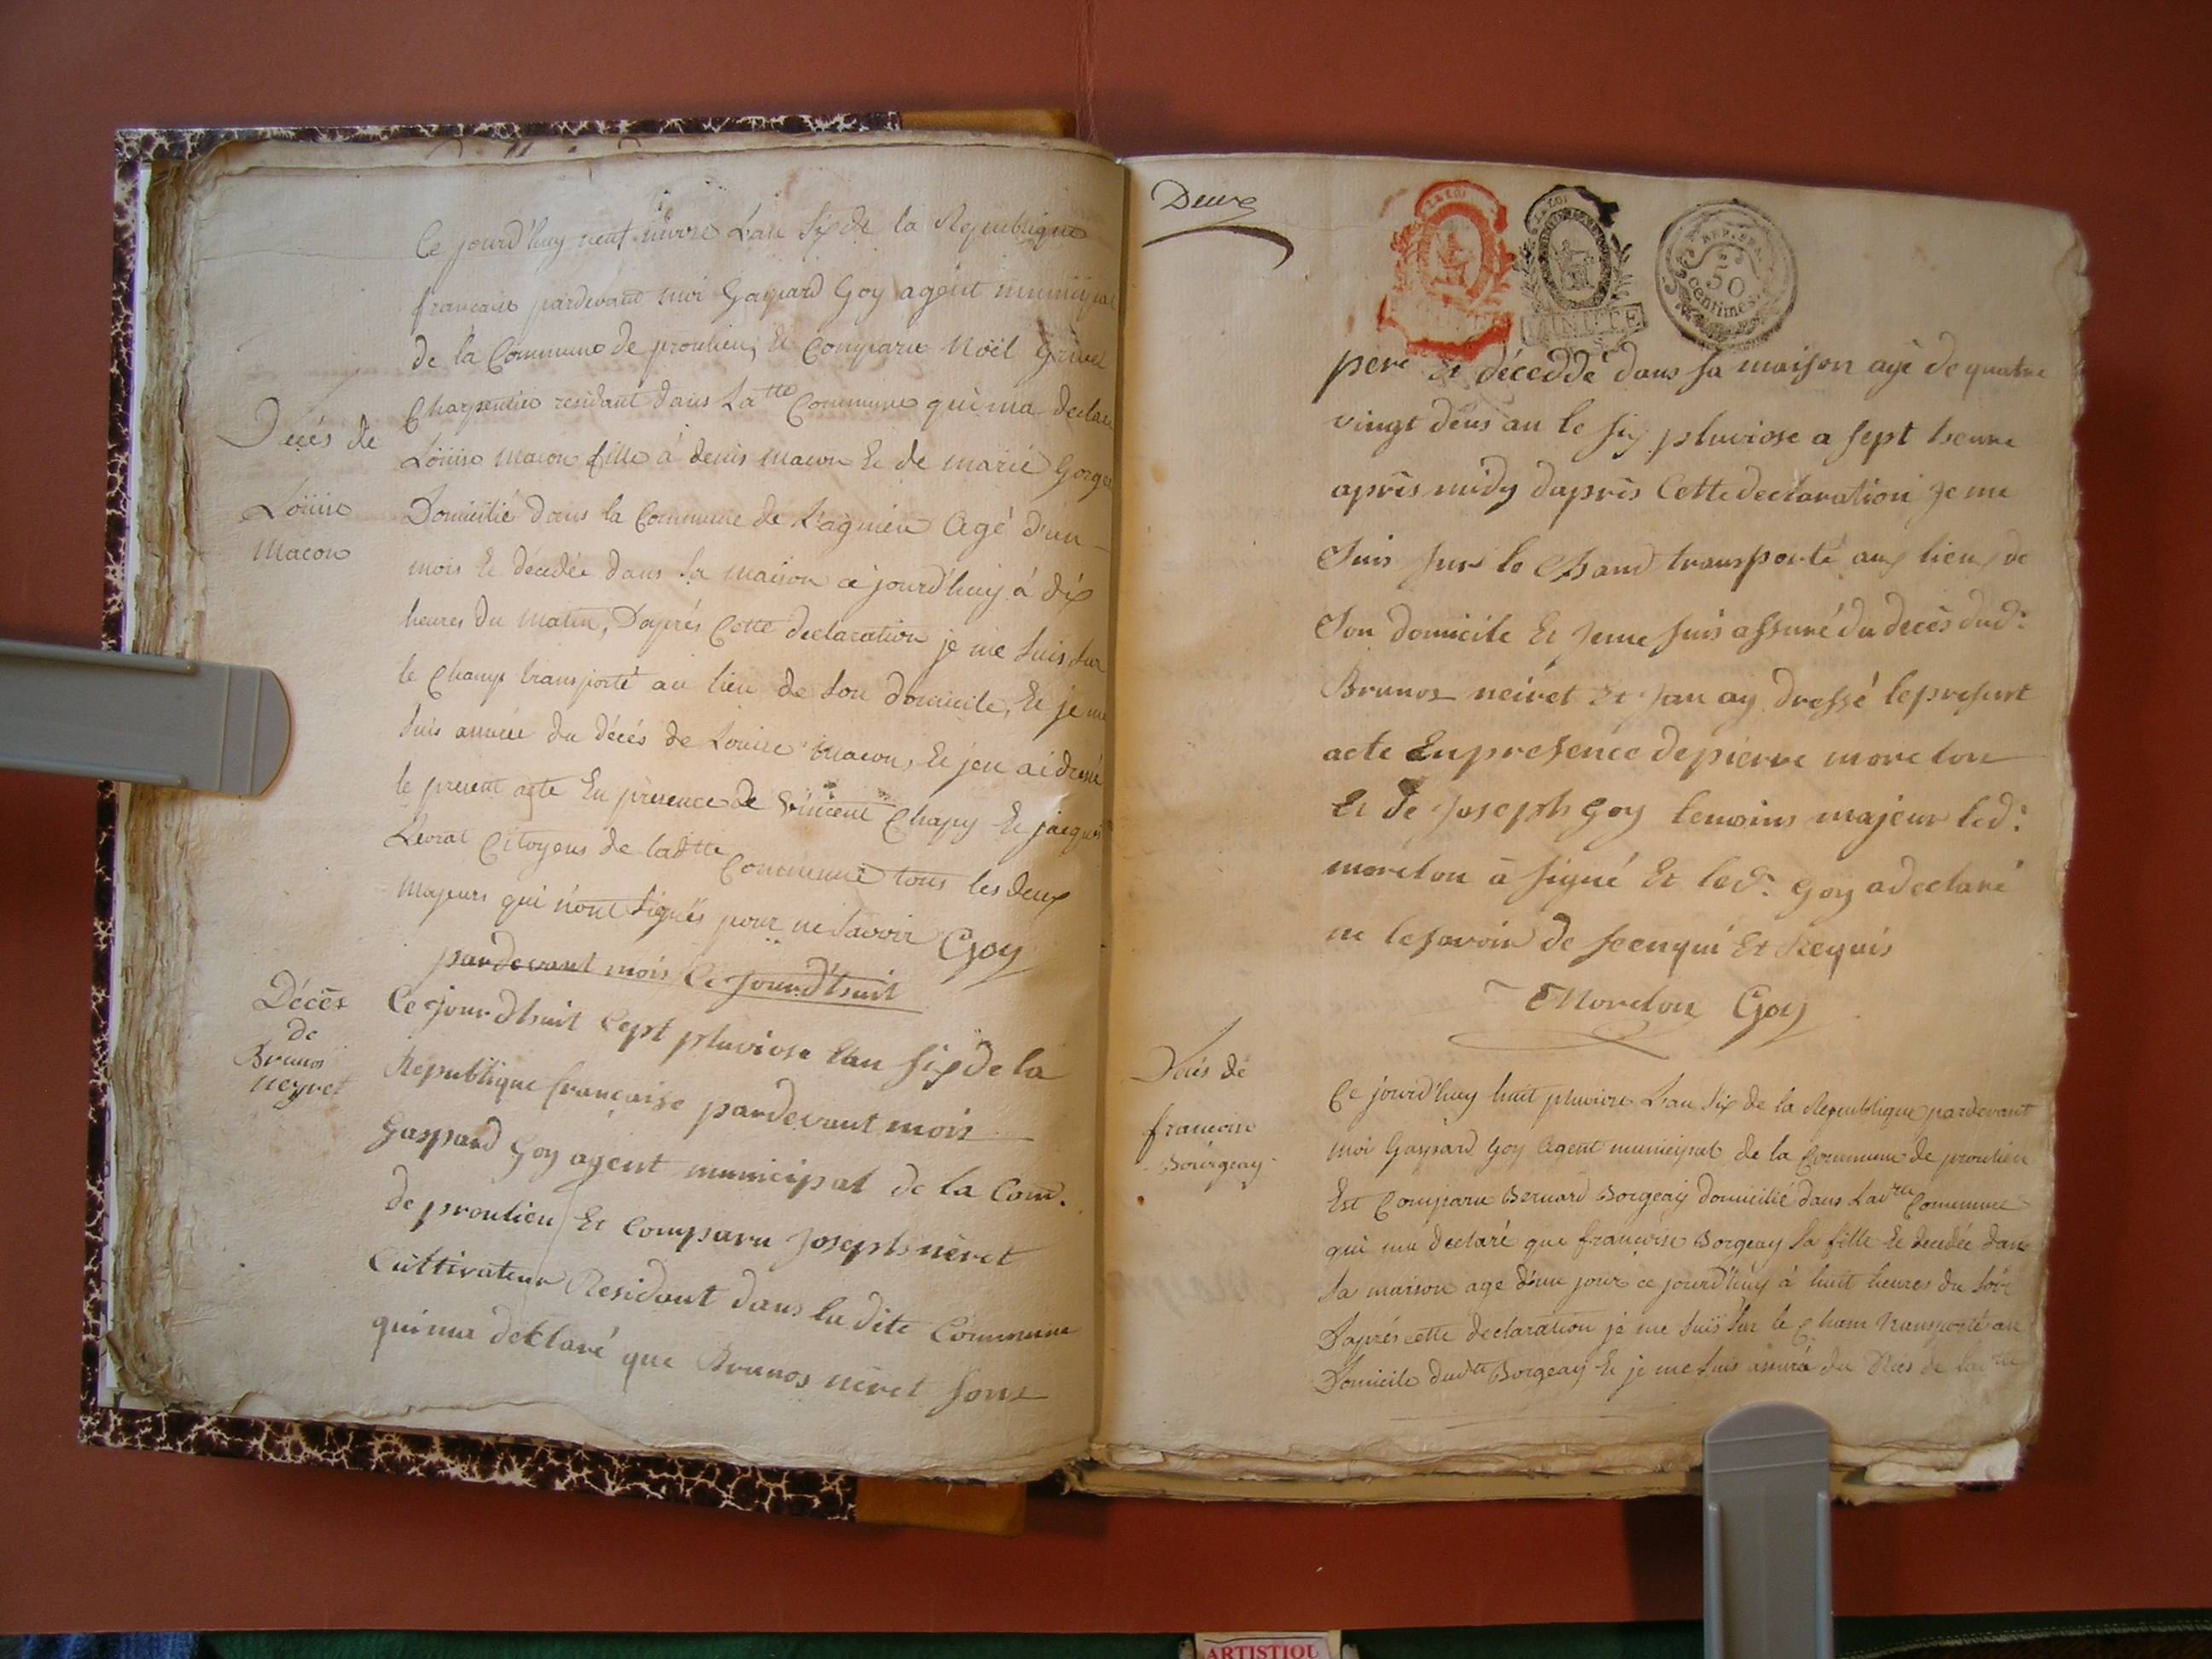 Ce jourd'huy neuf nivose L'an Six de la Republique
francaise pardevant moi Gaspard Goy agent municipal
de la Commune de proulieu, Et Comparu Noël Grivel
Charpentier residant dans La tte Commune qui ma declaré
Décés de
Loüise
Macon
Loüise macon fille à denis macon Et de marie Gorge
Domicilié dans la Commune de Lagnieu Agé d'un
mois Et décedée dans sa maison ce jourd'huy à dix
heures du matin, D'aprés Cette declaration je me suis sur
le Champs transporté au lieu de son domicile, Et je me
suis assuré du décés de Louise macon, Et jen ai dressé
le present acte En presence de Vincent Chapy Et jacques
Levrat Citoyens de ladtte Commune tous les deux
majeurs qui nont signés pour ne savoir Goy
pardevant mois Ce jourd'huit
Décès
de
Brunos
neyret
Ce jourdhuit Sept pluviose Lan six de la
Republique francaise pardevant mois
Gaspard Goy agent municipal de la Com.
de proulieu Et Comparu Joseph nèret
Cultivateur Residant dans la dite Commune
qui ma déclaré que Brunos néret Sont
Deux
50
centimes
MINUTE
pere et déceddé dans sa maison agé de quatre
vingt deus an le six pluviose a sept heure
après midy daprès Cette declaration Je me
Suis sur le Chand transporté aux lieux de
Son domicile Et Jeme suis assuré du decès dud:
Brunos neiret Et Jan ay dressé le presant
acte En presence de pierre moreton
Et de Joseph Goy temoins majeur led:
moreton à signé Et led: Goy a declaré
ne le savoir de Et Requis
Moreton Goy
Décés de
francoise
Bourgeay
Ce jourd'huy huit pluviose L'an Six de la Republique pardevant
moi Gaspard Goy Agent municipal de la Commune de proulieu
Est Comparu Bernard Borgeay domicilié dans Ladtte Commune
qui ma declaré que francoise Borgeay sa fille Et decedée dans
sa maison age d'un jour ce jourd'huy à huit heures du soir
D'aprés cette declaration je me suis sur le Cham transporté au
Domicile dudtt Borgeay Et je me suis assuré du Décés de ladtte
ARTISTIQU